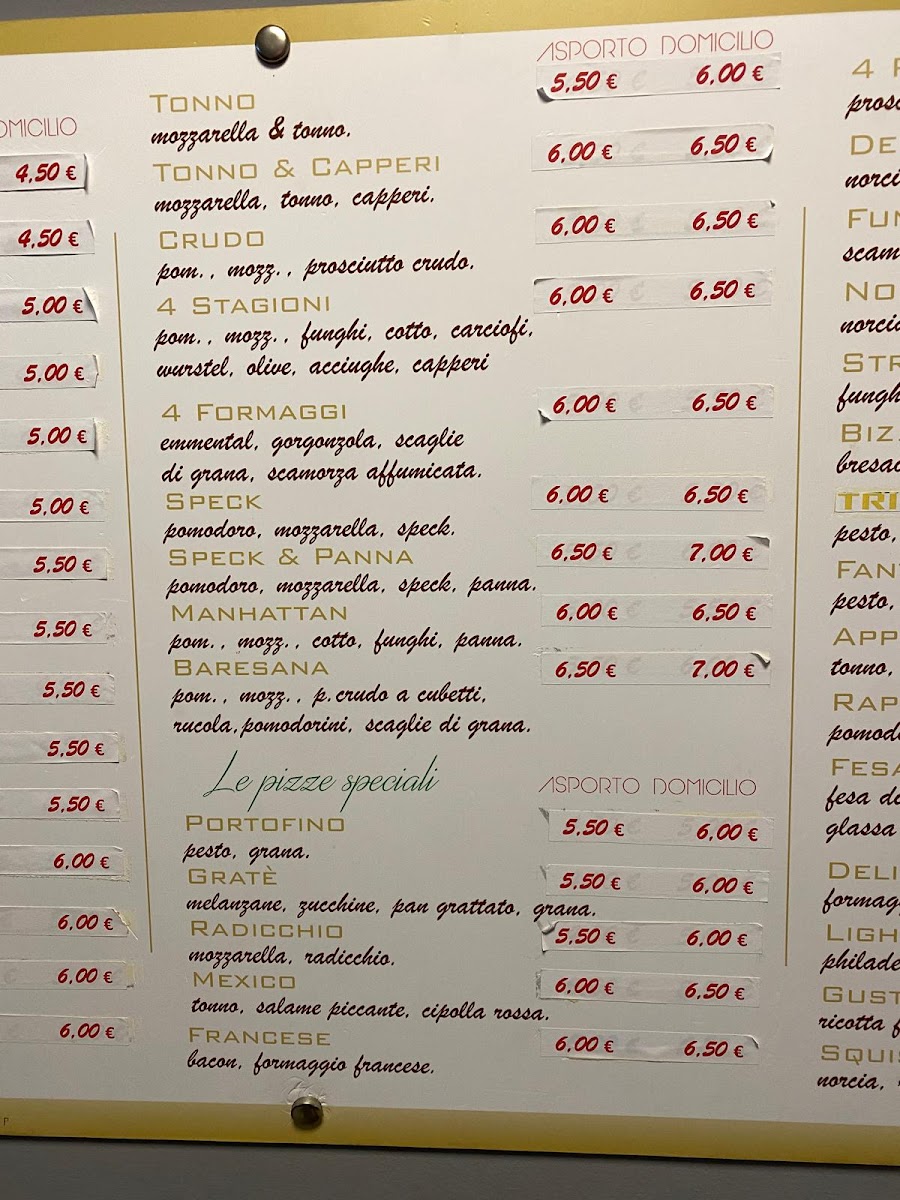 DOMICILIO
4,50 €
4,50 €
5,00 €
5,00 €
5,00 €
5,00 €
5,50 €
5,50 €
5,50 €
5,50 €
5,50 €
6,00 €
6,00 €
6,00 €
6,00 €
ASPORTO DOMICILIO
TONNO 5,50 € 6,00 €
mozzarella & tonno.
TONNO & CAPPERI 6,00 € 6,50 €
mozzarella, tonno, capperi.
CRUDO 6,00 € 6,50 €
pom., mozz., prosciutto crudo.
4 STAGIONI 6,00 € 6,50 €
pom., mozz., funghi, cotto, carciofi,
wurstel, olive, acciughe, capperi
4 FORMAGGI 6,00 € 6,50 €
emmental, gorgonzola, scaglie
di grana, scamorza affumicata.
SPECK 6,00 € 6,50 €
pomodoro, mozzarella, speck.
SPECK & PANNA 6,50 € 7,00 €
pomodoro, mozzarella, speck, panna.
MANHATTAN 6,00 € 6,50 €
pom., mozz., cotto, funghi, panna.
BARESANA 6,50 € 7,00 €
pom., mozz., p.crudo a cubetti,
rucola, pomodorini, scaglie di grana.
Le pizze speciali ASPORTO DOMICILIO
PORTOFINO 5,50 € 6,00 €
pesto, grana.
GRATÈ 5,50 € 6,00 €
melanzane, zucchine, pan grattato, grana.
RADICCHIO 5,50 € 6,00 €
mozzarella, radicchio.
MEXICO 6,00 € 6,50 €
tonno, salame piccante, cipolla rossa.
FRANCESE 6,00 € 6,50 €
bacon, formaggio francese.
4
pesto,
pesto,
tonno,
fesa
glassa
ricotta
norcia,